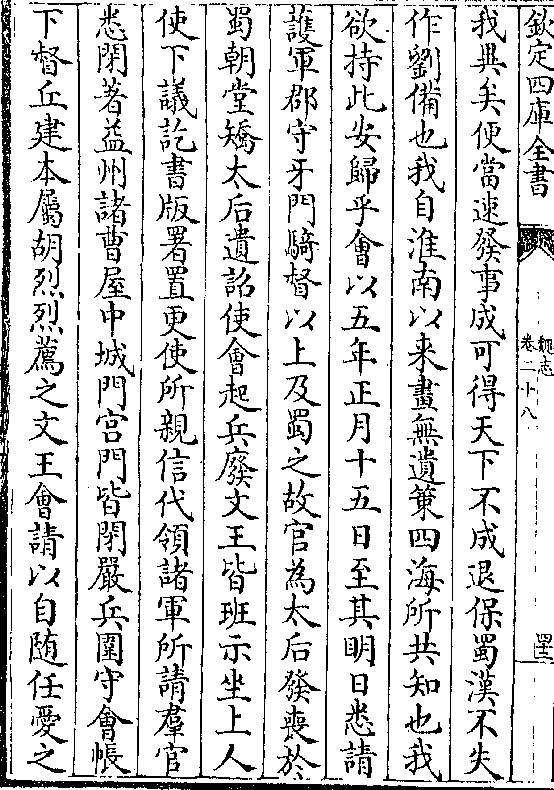 欽定四庫全書
魏志
卷二十八
我異矣便當速發事成可得天下不成退保蜀漢不失
作劉備也我自淮南以来畫無遺策四海所共知也我
欲持此安歸乎會以五年正月十五日至其明日悉請
護軍郡守牙門騎督以上及蜀之故官為太后發喪於
蜀朝堂矯太后遺詔使會起兵廢文王皆班示坐上人
使下議訖書版署置更使所親信代領諸軍所請羣官
悉閉著益州諸曹屋中城門宫門皆閉嚴兵圍守會帳
下督丘建本屬胡烈烈薦之文王會請以自随任愛之